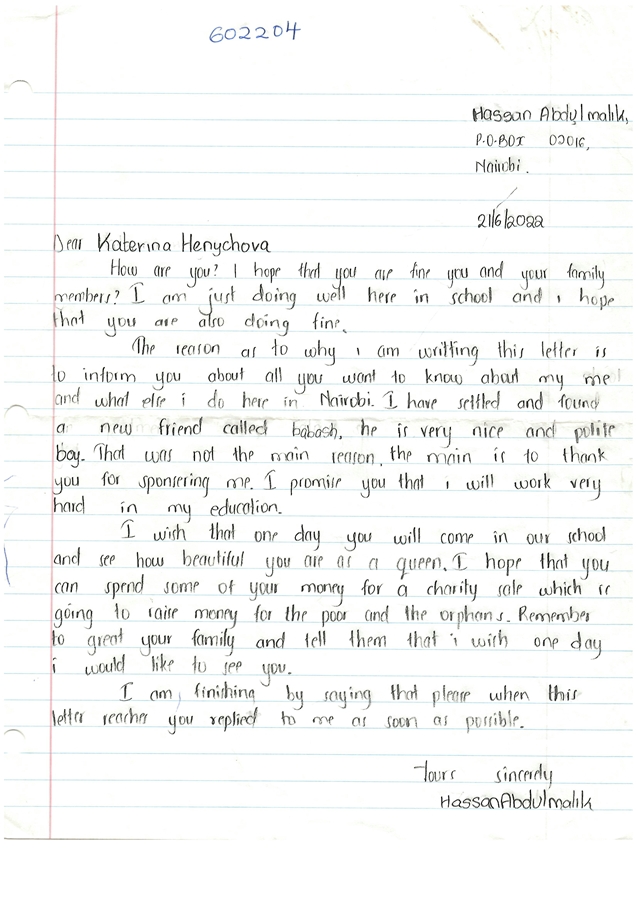 602204
Hassan Abdulmalik,
P.O.BOX 00016,
Nairobi.
21/6/2022
Dear Katerina Henychova
How are you? I hope that you are fine you and your family
members? I am just doing well here in school and i hope
that you are also doing fine.
The reason as to why i am writting this letter is
to inform you about all you want to know about my me
and what else i do here in Nairobi. I have settled and found
a new friend called babash, he is very nice and polite
boy. That was not the main reason, the main is to thank
you for sponsering me. I promise you that i will work very
hard in my education.
I wish that one day you will come in our school
and see how beautiful you are as a queen. I hope that you
can spend some of your money for a charity sale which is
going to raise money for the poor and the orphans. Remember
to great your family and tell them that i wish one day
i would like to see you.
I am finishing by saying that please when this
letter reaches you replied to me as soon as possible.
Yours sincerly
Hassan Abdulmalik